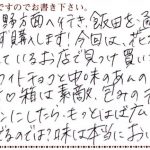 ですのでお書き下さい。
野方面へ行き、飯田を通
ず購入します!今回は、花
ているお店で見つけ買い
ワイトチョコと中の味のあんの
♡箱は素敵、包みの
ンにしたら、もっとはば広
でるのでは?味は本当においし